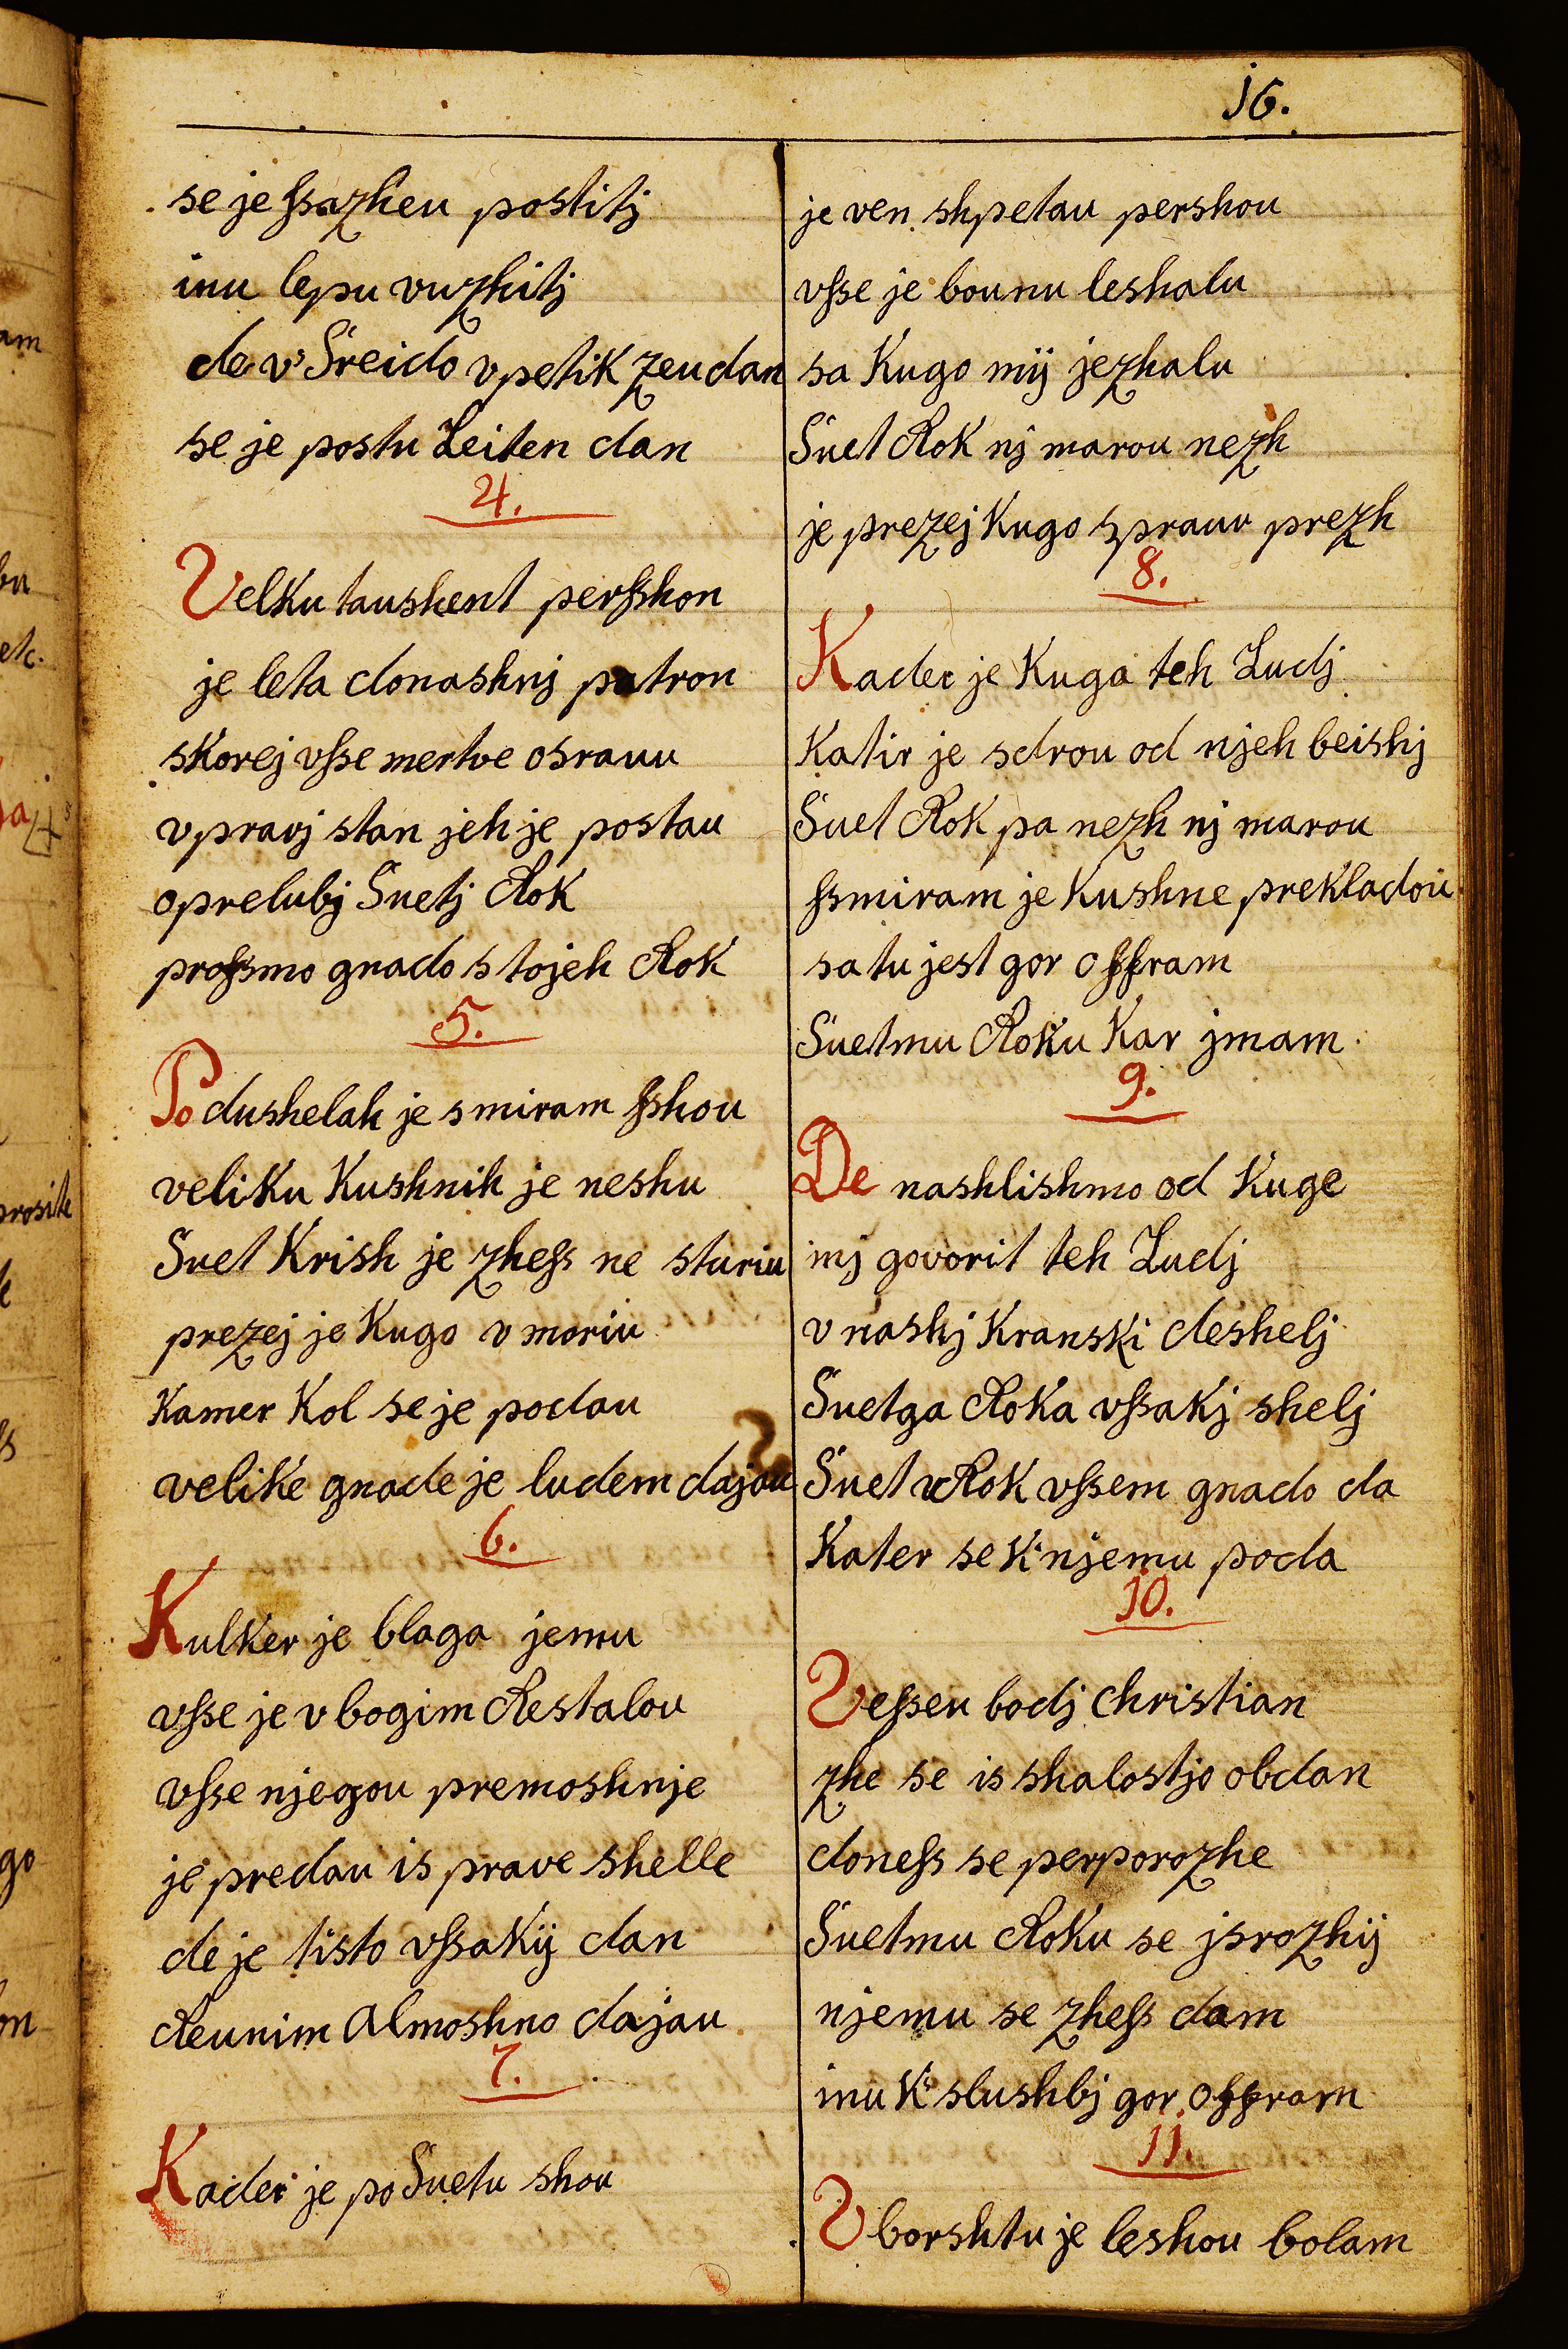 16.
se je ſsazheu postitj
inu lepu vuzhitj
de v' Sreido v petik zeu dan
se je postu Leiten dan
4.
Velku taushent perſshon
je leta donashnj patron
skorej vſse mertve osrauu
v pravj stan jeh je postau
o prelubj Suetj Rok
proſsmo gnado s tojeh Rok
5.
Po dushelah je smiram ſshou
veliku Kushnih je neshu
Suet Krish je zheſs ne sturiu
prezej je Kugo v moriu
Kamer Kol se je podau
velike gnade je ludem dajau
6.
Kulker je blaga jemu
vſse je vbogim Restalou
vſse njegou premoshnje
je predau is prave shelle
de je tisto vſsakij dan
Reunim Almoshno dajau
7.
Kader je po Suetu shou
je ven shpetau pershou
vſse je bounu leshalu
sa Kugo mij jezhalu
Suet Rok nj marou nezh
je prezej Kugo spravu prezh
8.
Kader je Kuga teh Ludj
Katir je sdrou od njeh beishj
Suet Rok pa nezh nj marou
ſsmiram je Kushne prekladou
sa tu jest gor offram
Suetmu Roku Kar jmam
9.
De nashlishmo od Kuge
inj govorit teh Ludj
v nashj Kranski deshelj
Suetga Roka vſsakj shelj
Suet Rok vſsem gnado da
Kater se K'njemu poda
10.
Veſseu bodj Christian
zhe se is shalostjo obdan
doneſs se perporozhe
Suetmu Roku se jsrozhij
njemu se zheſs dam
inu K' slushbj gor offram
11.
V borshtu je leshou bolam